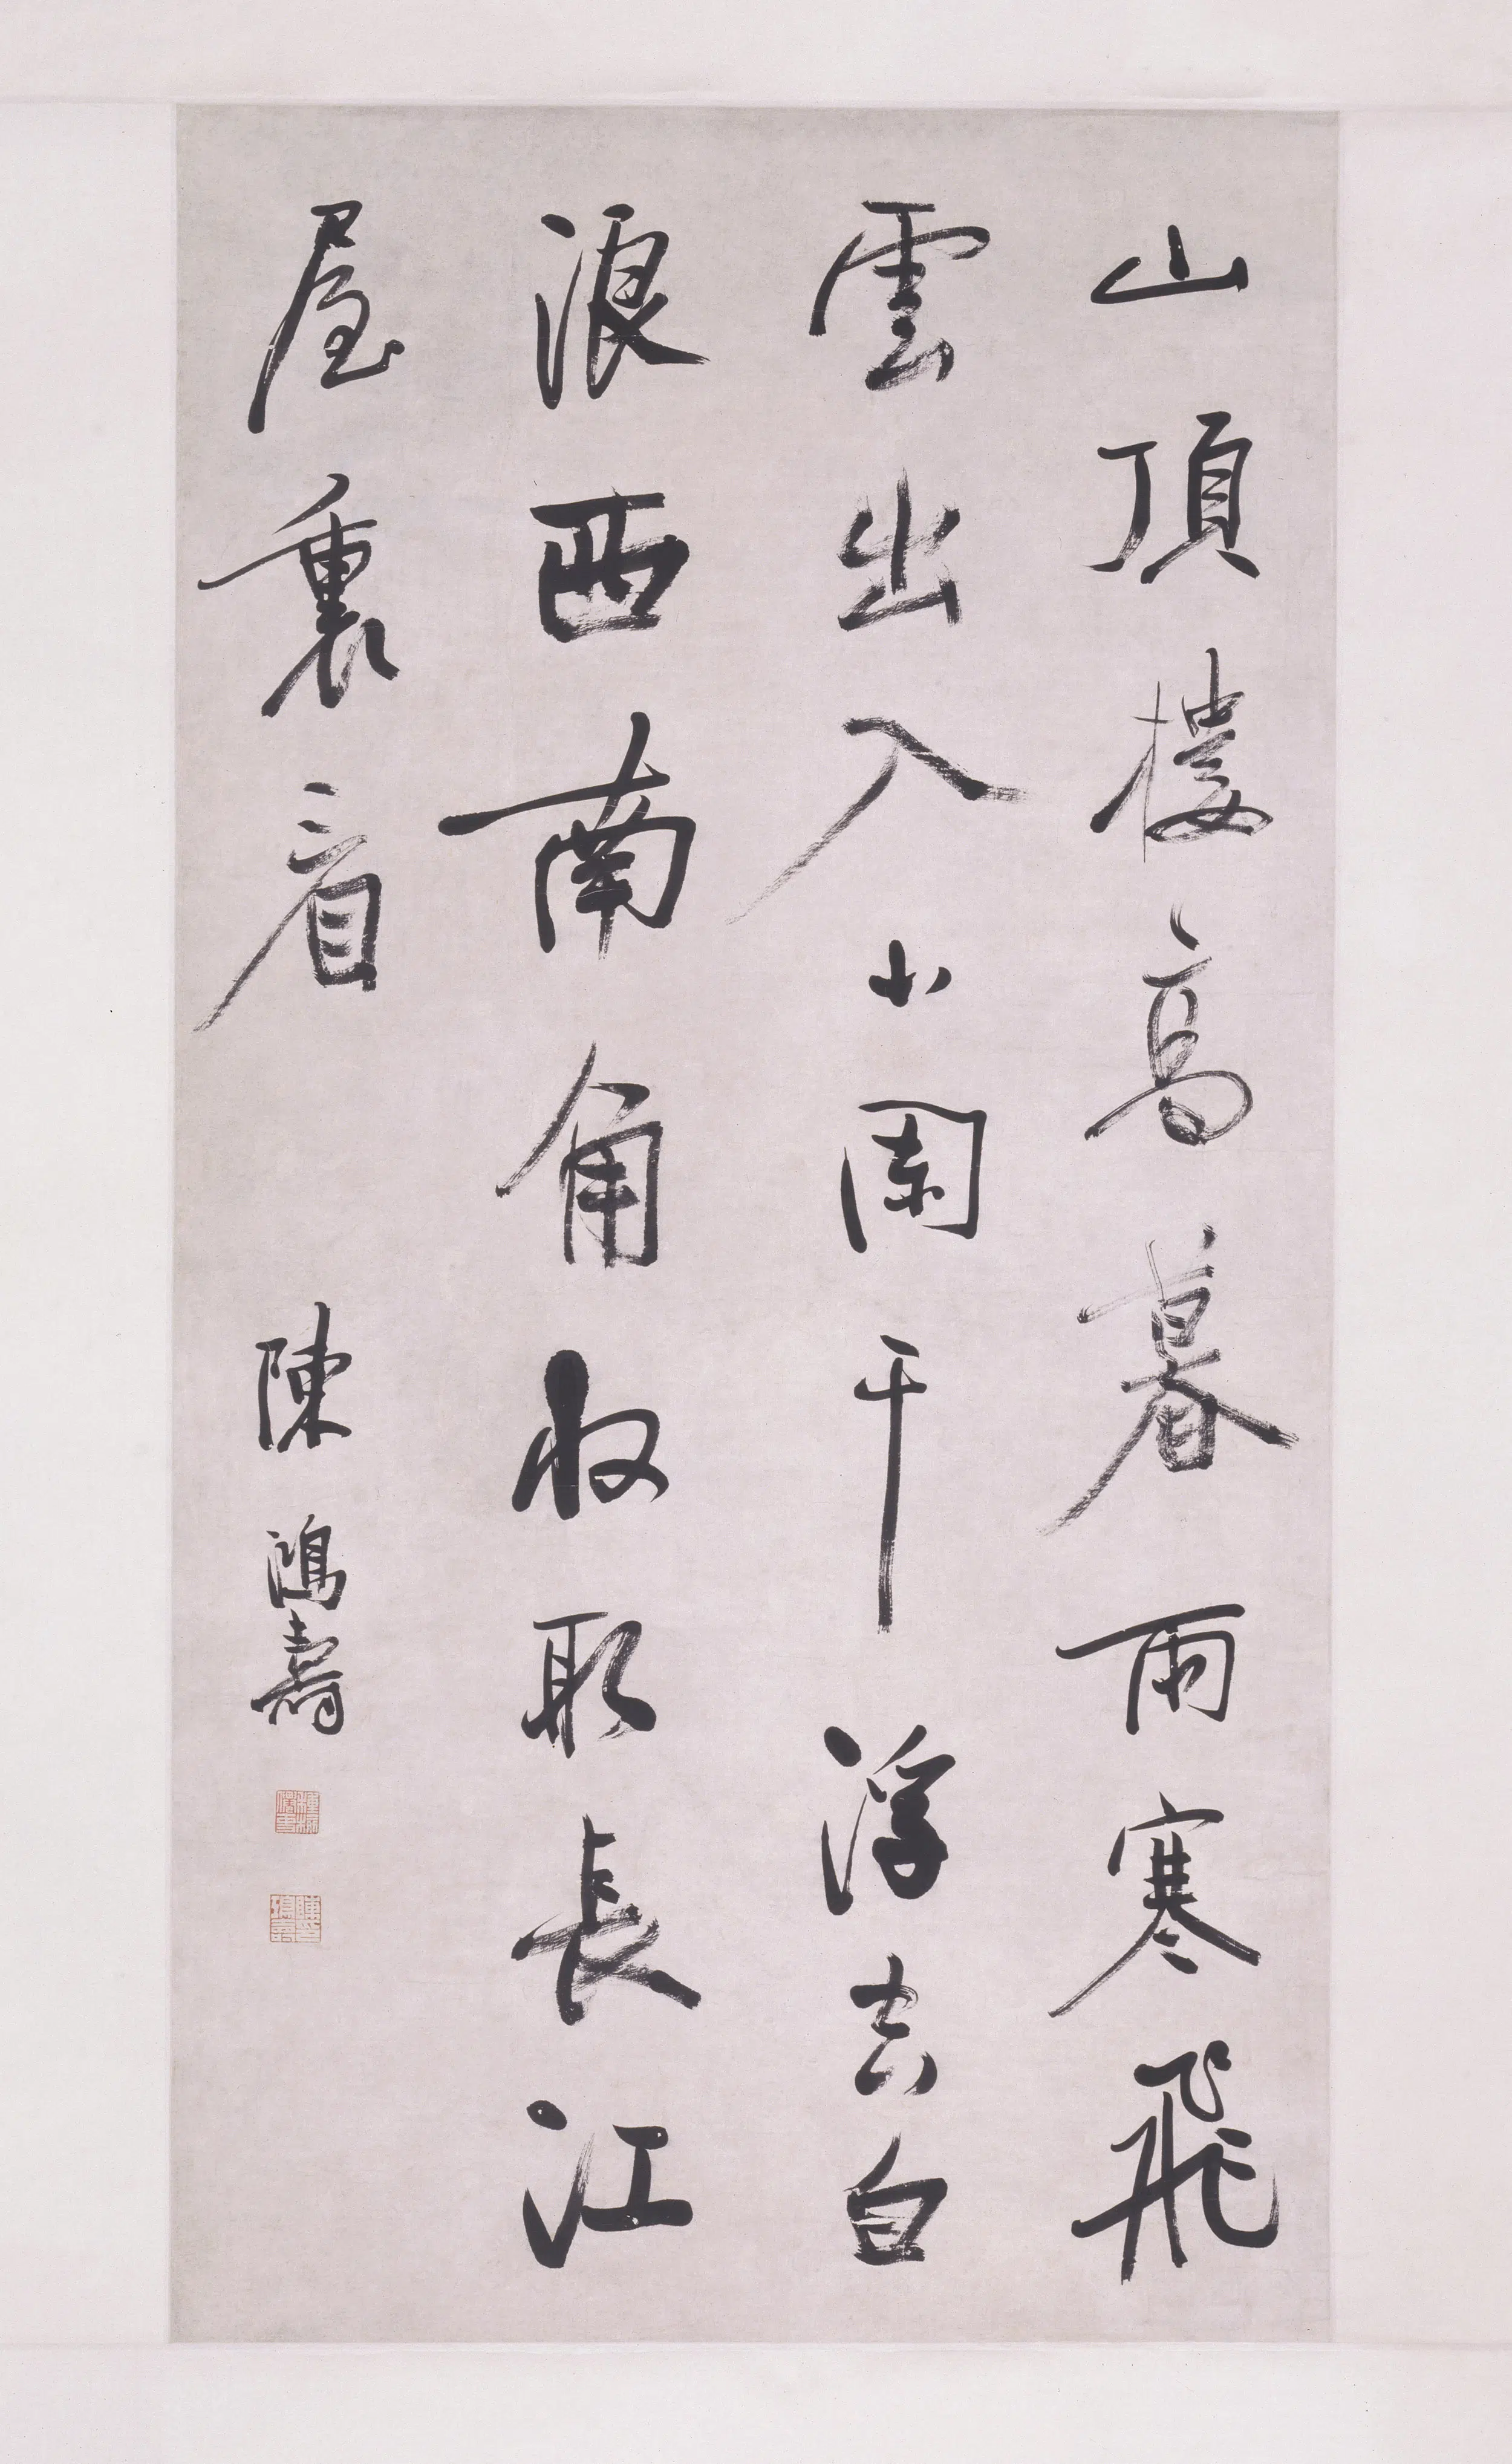 山頂樓高暮雨寒飛
雲出入小闌干浮去白
浪西南角收取長江
屋裏看
陳鴻壽
陳鴻壽印